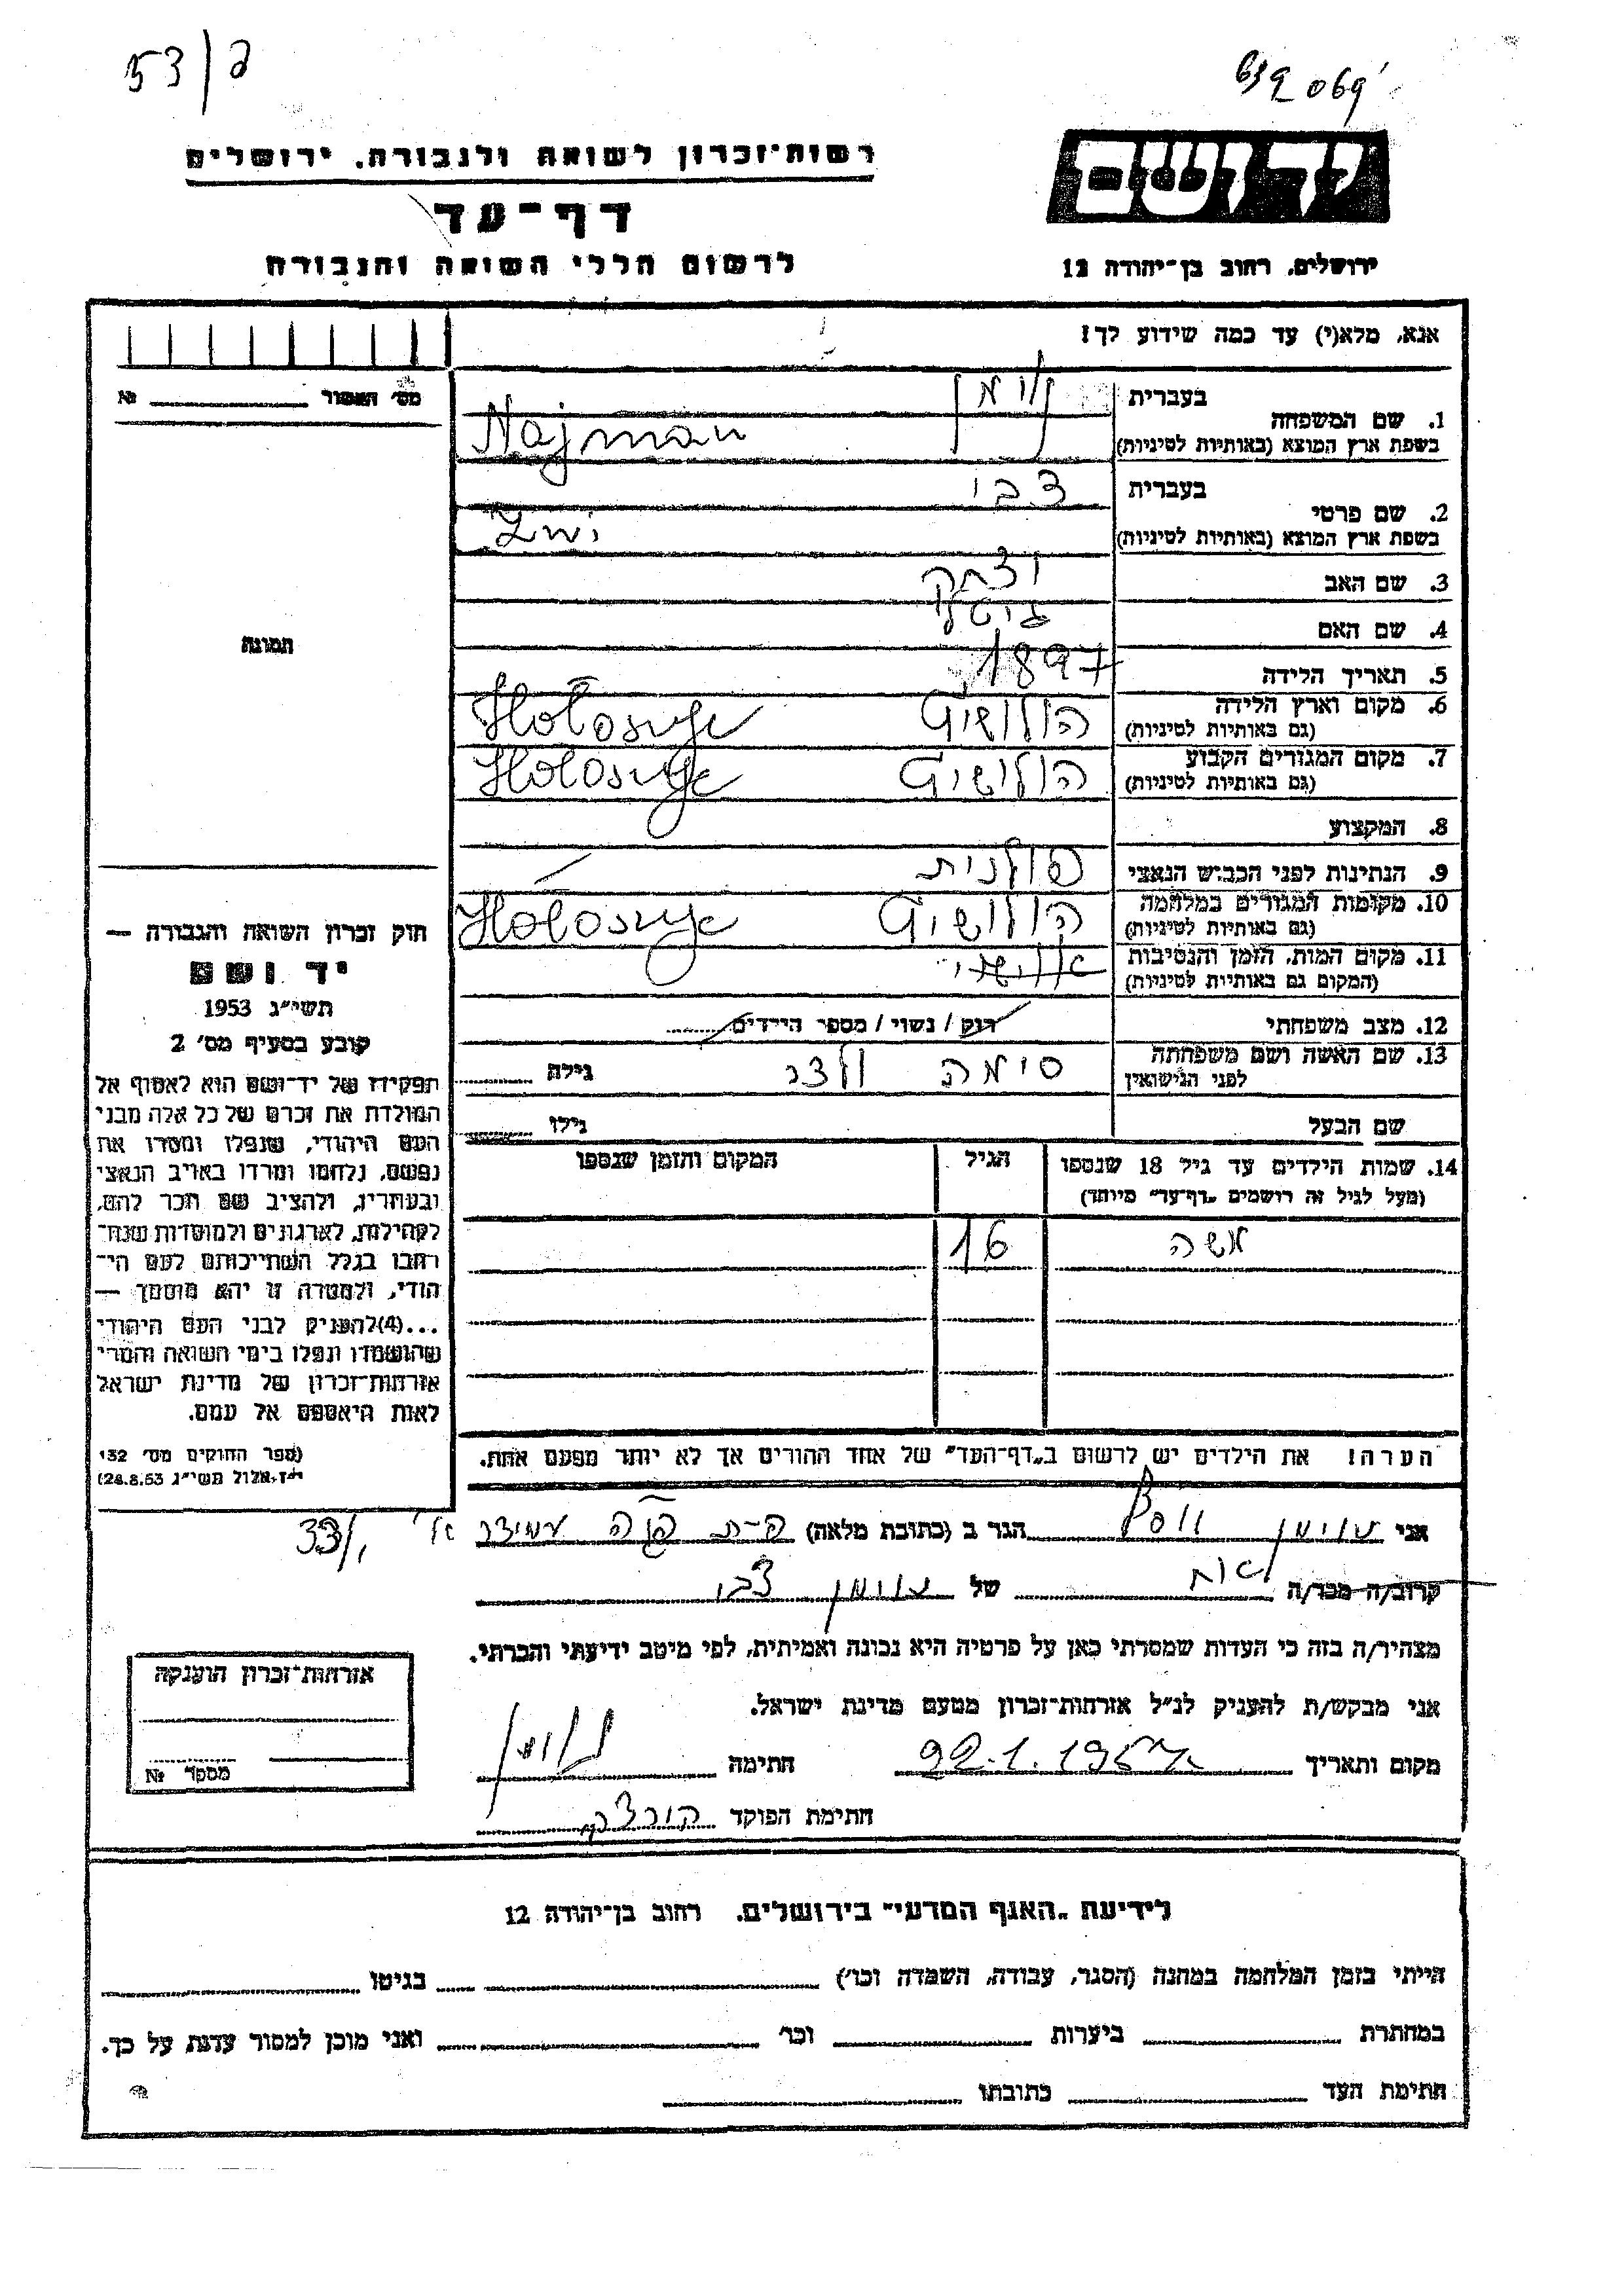 53/ג
רשות־זכרון לשואה ולגבורה. ירושלים
דף־עד
לרשום חללי השואה והגבורה
ידושם
ירושלים, רחוב בן־יהודה 12
אנא, מלא(י) עד כמה שידוע לך!
מס' האשור № 
תמונה
1. שם המשפחה בעברית
בשפת ארץ המוצא (באותיות לטיניות) Najman
2. שם פרטי בעברית צבי
בשפת ארץ המוצא (באותיות לטיניות) Zwi
3. שם האב יצחק
4. שם האם גיטל
5. תאריך הלידה 1897
6. מקום וארץ הלידה
(גם באותיות לטיניות)
7. מקום המגורים הקבוע
(גם באותיות לטיניות)
8. המקצוע
9. הנתינות לפני הכבוש הנאצי פולנית
10. מקומות המגורים במלחמה
(גם באותיות לטיניות)
11. מקום המות, הזמן והנסיבות
(המקום גם באותיות לטיניות)
12. מצב משפחתי רוק / נשוי / מספר הילדים
13. שם האשה ושם משפחתה
לפני הנישואין סימה גילה
שם הבעל גילו
14. שמות הילדים עד גיל 18 שנספו הגיל המקום והזמן שנספו
(מעל לגיל זה רושמים „דף־עד" מיוחד)
משה 16
הערה! את הילדים יש לרשום ב„דף־העד" של אחד ההורים אך לא יותר מפעם אחת.
חוק זכרון השואה והגבורה —
יד ושם
תשי"ג 1953
קובע בסעיף מס' 2
תפקידו של יד־ושם הוא לאסוף אל
המולדת את זכרם של כל אלה מבני
העם היהודי, שנפלו ומסרו את
נפשם, נלחמו ומרדו באויב הנאצי
ובעוזריו, ולהציב שם וזכר להם,
לקהילות, לארגונים ולמוסדות שנח־
רבו בגלל השתייכותם לעם הי־
הודי, ולמטרה זו יהא מוסמך —
...(4) להעניק לבני העם היהודי
שהושמדו ונפלו בימי השואה והמרי
אזרחות־זכרון של מדינת ישראל
לאות היאספם אל עמם.
(ספר החוקים מס' 132
י"ז אלול תשי"ג 28.8.53)
אני נוימן הגר ב (כתובת מלאה) עמידר 33/1
קרוב/ה מכר/ה אח של נוימן צבי
מצהיר/ה בזה כי העדות שמסרתי כאן על פרטיה היא נכונה ואמיתית, לפי מיטב ידיעתי והכרתי.
אני מבקש/ת להעניק לנ"ל אזרחות־זכרון מטעם מדינת ישראל.
מקום ותאריך חתימה נוימן
חתימת הפוקד
אזרחות־זכרון הוענקה
מספר №
לידיעת „האגף המדעי" בירושלים. רחוב בן־יהודה 12
הייתי בזמן המלחמה במחנה (הסגר, עבודה, השמדה וכו') בגיטו
במחתרת ביערות וכו' ואני מוכן למסור עדות על כך.
חתימת העד כתובתו